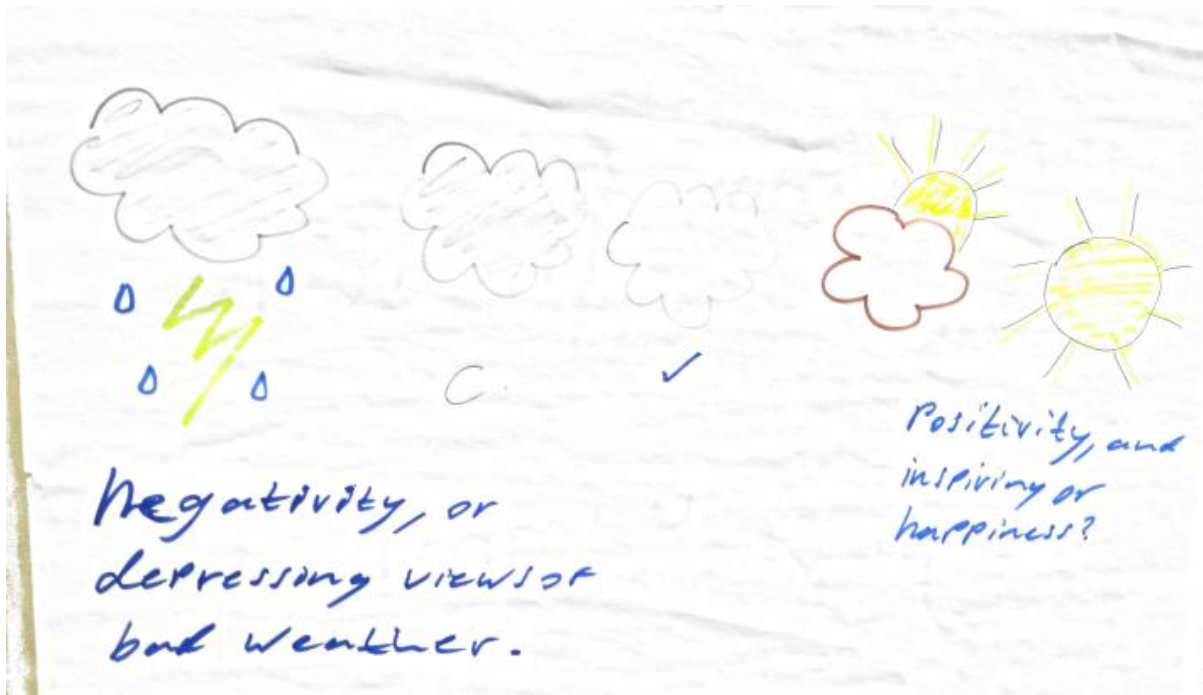 Negativity, or
depressing views of
bad weather.
Positivity, and
inspiring or
happiness?